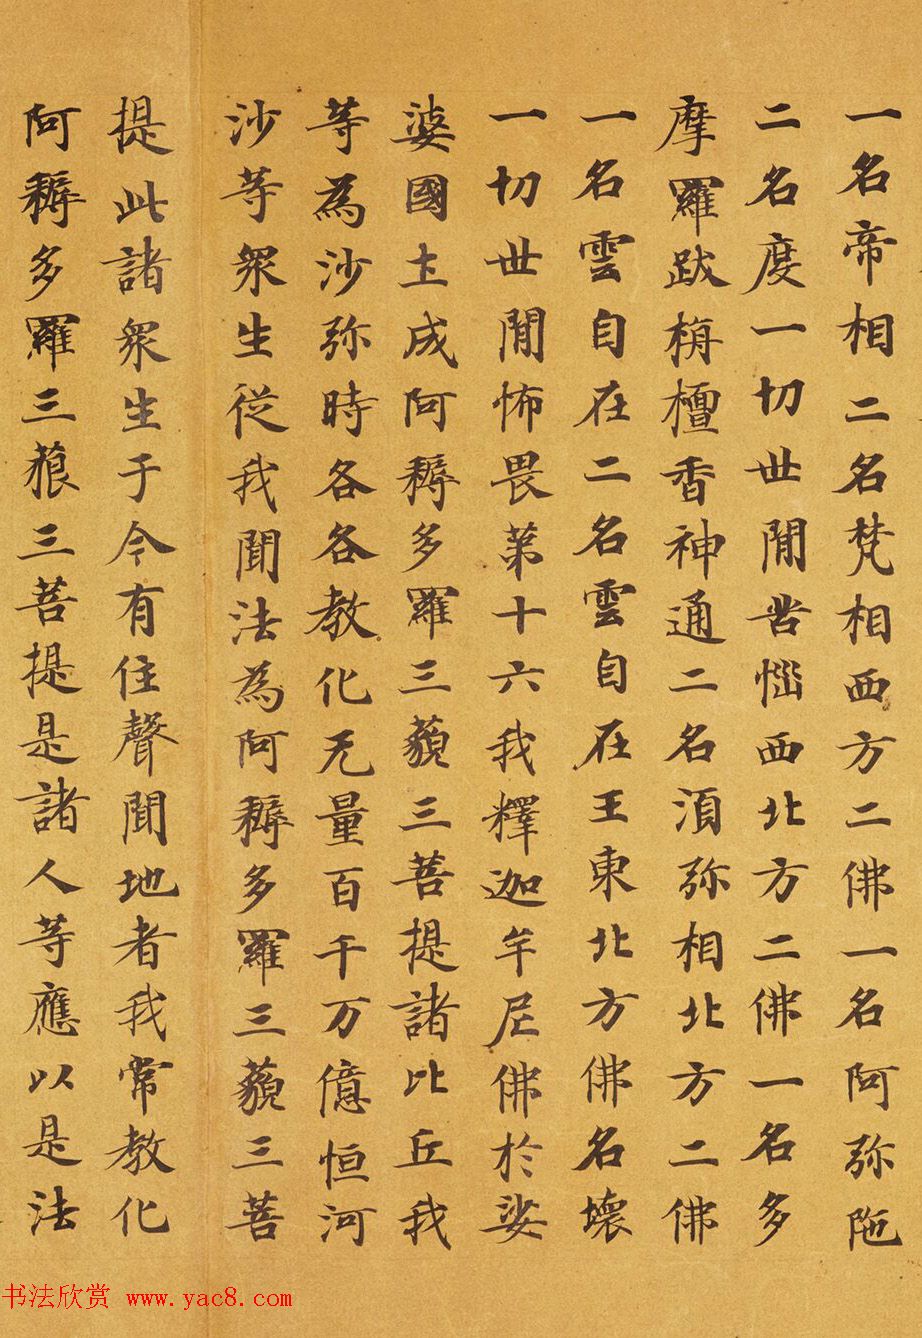 一名帝相二名梵相西方二佛一名阿弥陁
二名度一切世閒苦惱西北方二佛一名多
摩羅跋栴檀香神通二名湏弥相北方二佛
一名雲自在二名雲自在王東北方佛名壞
一切世閒怖畏第十六我釋迦牟尼佛於娑
婆國土成阿耨多羅三藐三菩提諸比丘我
等為沙弥時各各教化无量百千万億恒河
沙等衆生從我聞法為阿耨多羅三藐三菩
提此諸衆生于今有住聲聞地者我常教化
阿耨多羅三藐三菩提是諸人等應以是法
书法欣赏 www.yac8.com